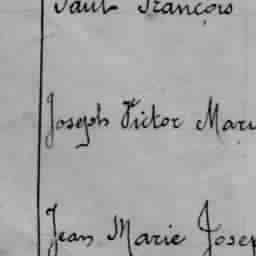 Paul François
Joseph Victor Mari
Jean Marie Josep